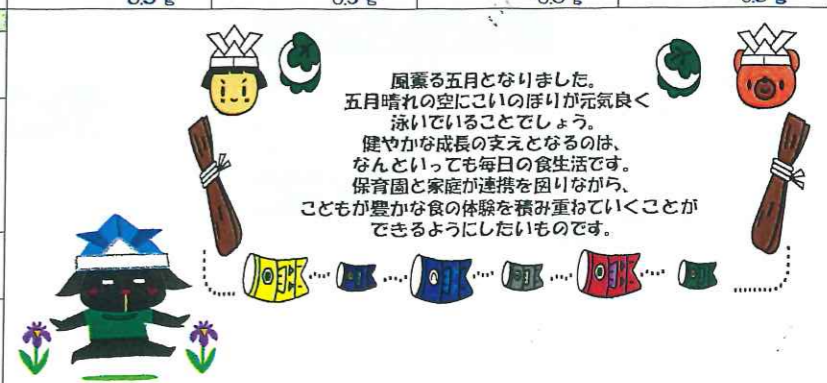 風薫る五月となりました。
五月晴れの空にこいのぼりが元気良く
泳いでいることでしょう。
健やかな成長の支えとなるのは、
なんといっても毎日の食生活です。
保育園と家庭が連携を図りながら、
こどもが豊かな食の体験を積み重ねていくことが
できるようにしたいものです。